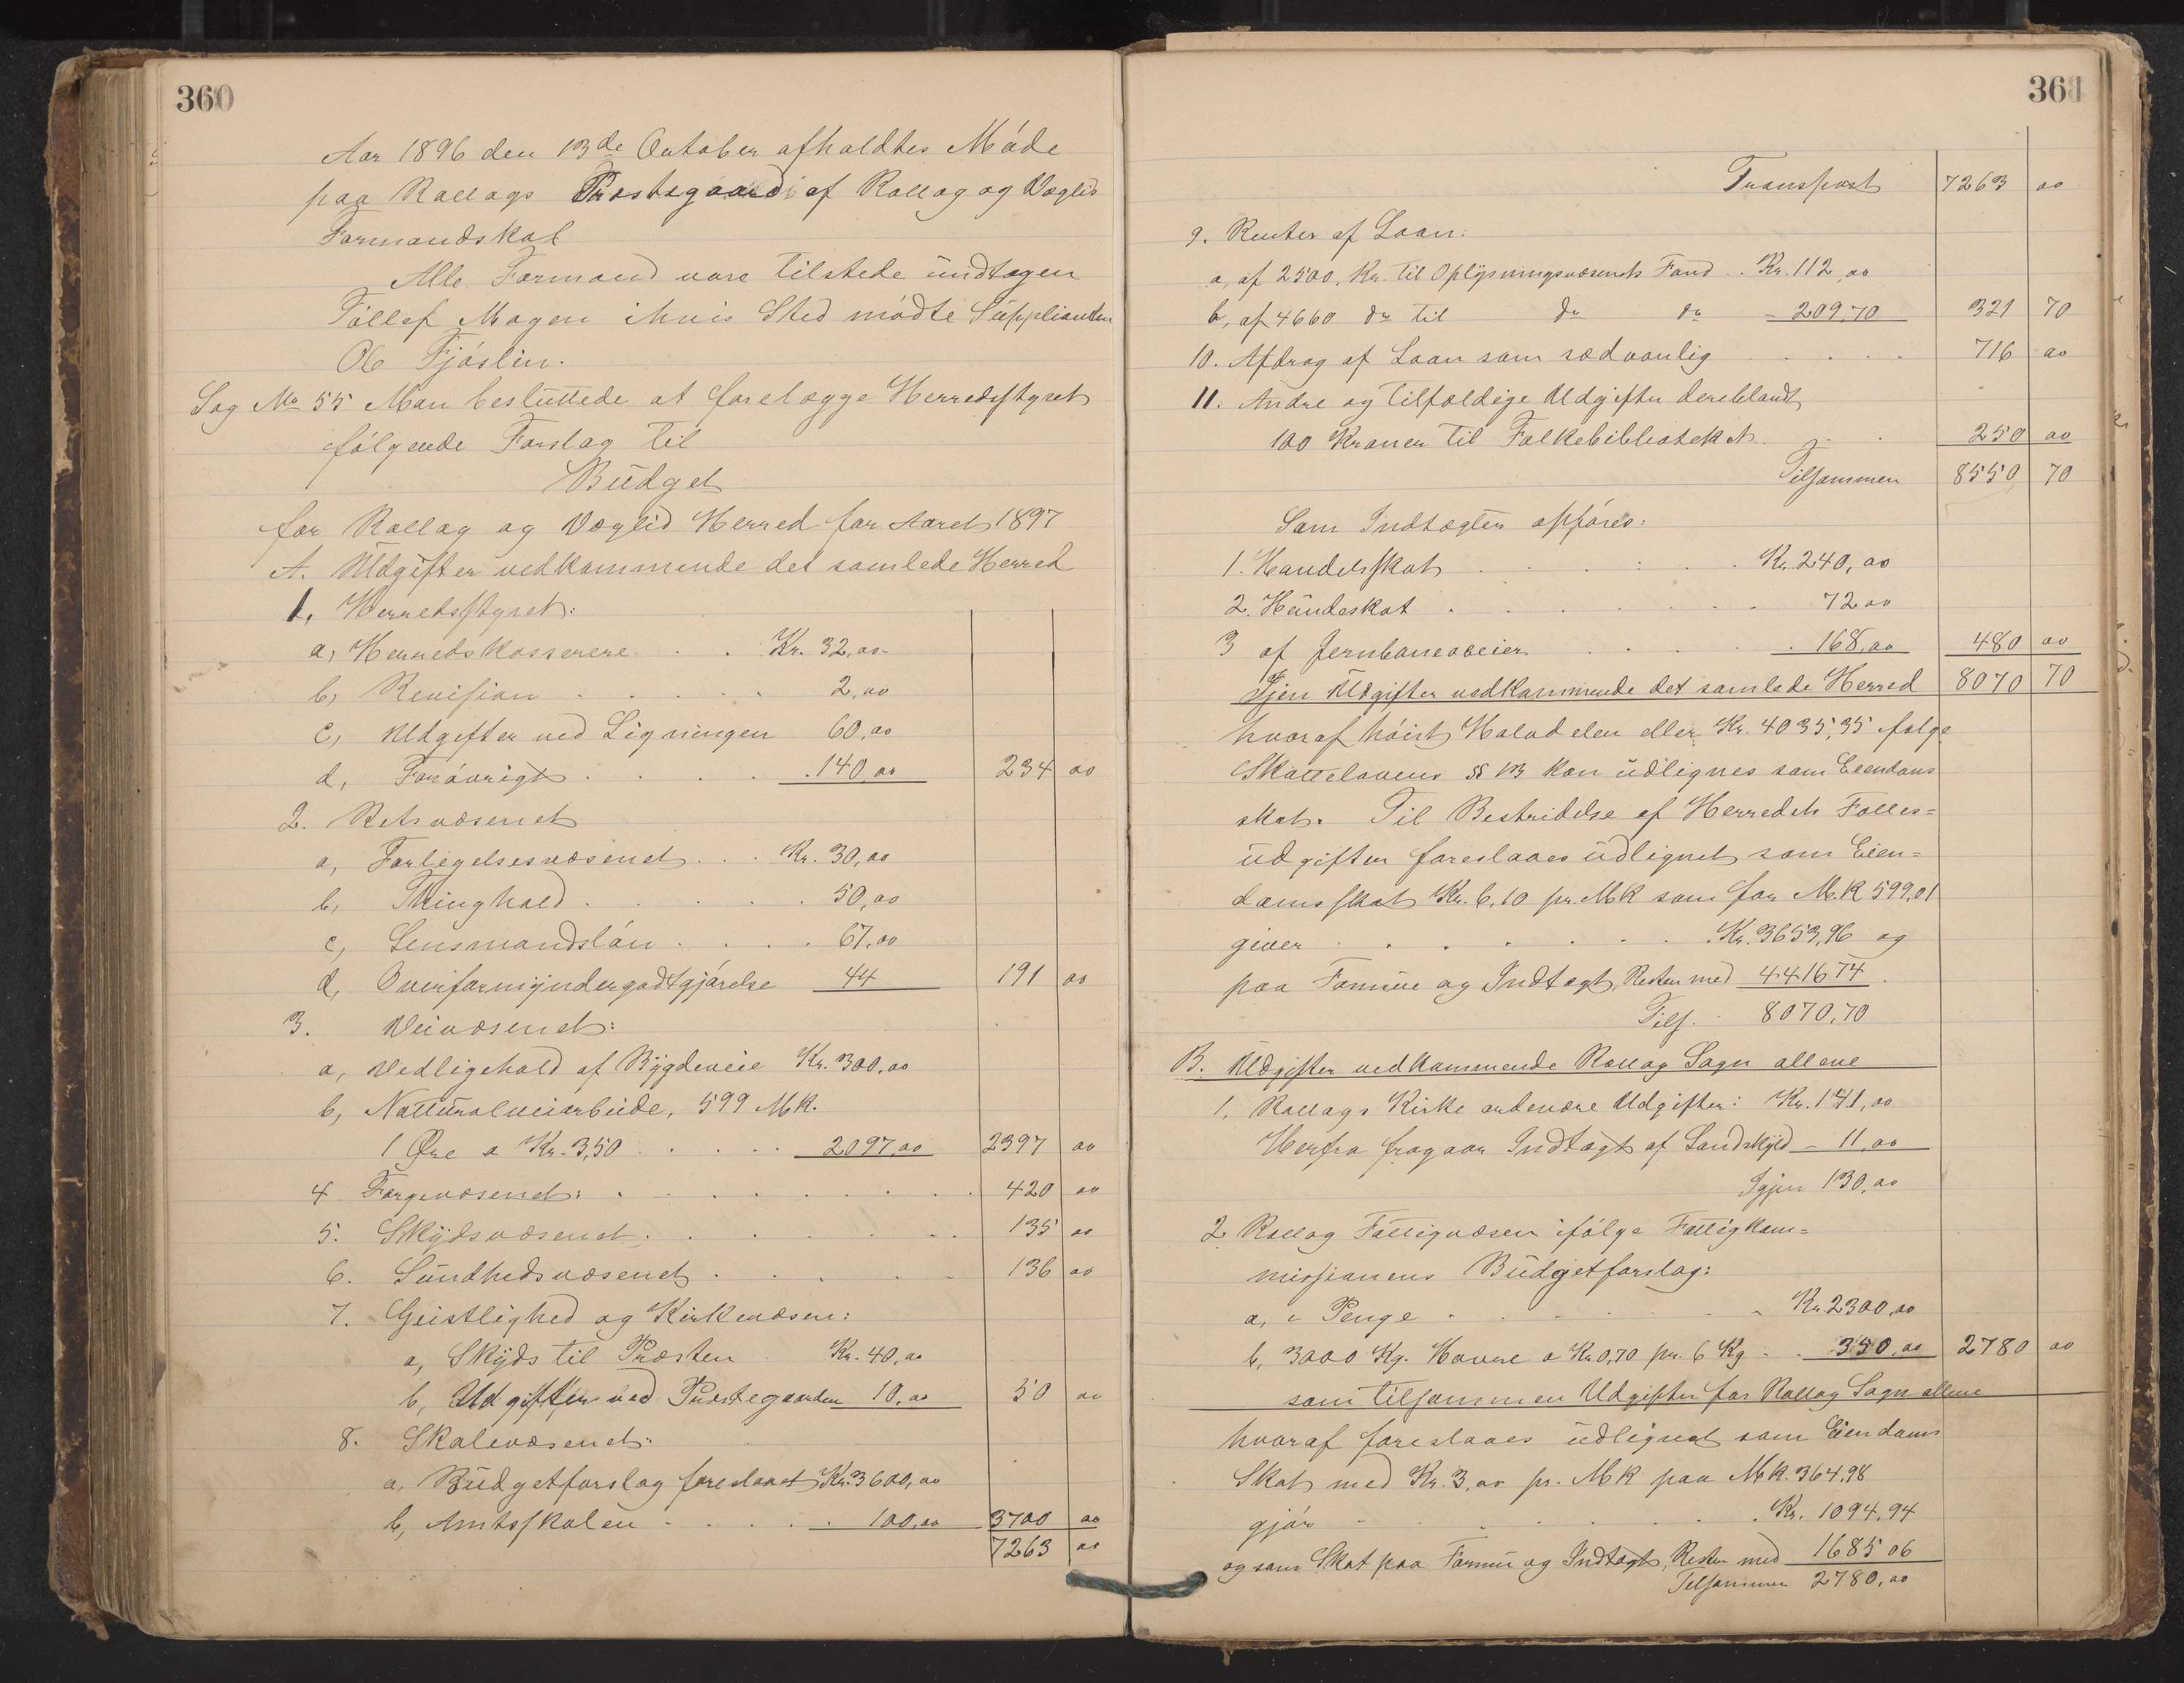 360
Aar 1896 den 13de October afholdtes Møde
paa Rollags Præstegaard af Rollag og Veglid
Formandskab
Alle Formænd vare tilstede undtagen
Tollef Mogen i hvis Sted mødte Suppleanten
Ole Fjøslin.
Sag No 55 Man besluttede at forelægge Herredstyret
følgende Forslag til
Budget
for Rollag og Veglid Herred for Aaret 1897
A. Udgifter vedkommende det samlede Herred
1, Herredsstyret:
a, Herredskasserere . . Kr. 32,00
b, Revision . . . . . 2,00
c, Udgifter ved Ligningen 60,00
d, Forøvrigt . . . . 140,00 234 00
2. Retsvæsenet
a, Forligelsesvæsenet . . . Kr. 30,00
b, Thinghold . . . . . . 50,00
c, Lensmandsløn . . . . 67,00
d, Overformyndergodtgjørelse 44 191 00
3. Veivæsenet:
a, Vedligehold af Bygdeveie Kr. 300,00
b, Naturalveiarbeide, 599 Mk.
1 Øre a Kr. 3,50 . . . . . 2097,00 2397 00
4 Færgevæsenet: . . . . . . . . 420 00
5. Skydsvæsenet . . . . . . . 135 00
6. Sundhedsvæsenet . . . . . 136 00
7. Geistlighed og Kirkevæsen:
a, Skyds til Præsten Kr. 40,00
b, Udgifter ved Præstegaarden 10,00 50 00
8. Skolevæsenet:
a, Budgetforslag foreslaaet Kr. 3600,00
b, Amtsskolen . . . . . 100,00 3700 00
7263 00
361
Transport 7263 00
9. Renter af Laan:
a, af 2500, Kr. til Oplysningsvæsenets Fond . . Kr. 112,00
b, af 4660 do til do do - 209,70 321 70
10. Afdrag af Laan som sædvanlig . . . . . 716 00
11. Andre og tilfældige Udgifter deriblandt
100 Kroner til Folkebibliotheket . . . 250 00
Tilsammen 8550, 70
Som Indtægter opføres:
1. Handelsskat . . . . . . Kr. 240,00
2. Hundeskat . . . . . . . 72,00
3 af Jernbaneaceier . . . . . . 168,00 480 00
Igjen Udgifter vedkommende det samlede Herred 8070 70
hvoraf høist Halvdelen eller Kr. 4035,35 ifølge
Skattelovens § 13 kan udlignes som Eiendoms
skat. Til Bestridelse af Herredets Fælles=
udgifter foreslaaes udlignet som Eien=
domsskat Kr. 6,10 pr. Mk som for M.K 599,01
giver . . . . . . . Kr. 3653,96 og
paa Formue og Indtægt, Resten med 4416 74
Tils. 8070,70
B. Udgifter vedkommende Rollag Sogn allene
1. Rollags Kirke ordenære Udgifter: Kr. 141,00
Herfra fragaar Indtægt af Landskyld - 11,00
Igjen 130,00
2 Rollag Fattigvæsen ifølge Fattigkom=
missionens Budgetforslag:
a, i Penge . . . . . . Kr. 2300,00
b, 3000 Kg. Havre a Kr 0,70 pr. 6 Kg . . 350,00 2780 00
som tilsammen Udgifter for Rollag Sogn allene
hvoraf foreslaaes udlignet som Eiendoms
Skat med Kr. 3,00 pr. Mk paa Mk. 364,98
gjør . . . . . . . Kr. 1094,94
og som Skat paa Formue og Indtægt, Resten med 1685 06
Tilsammen 2780,00